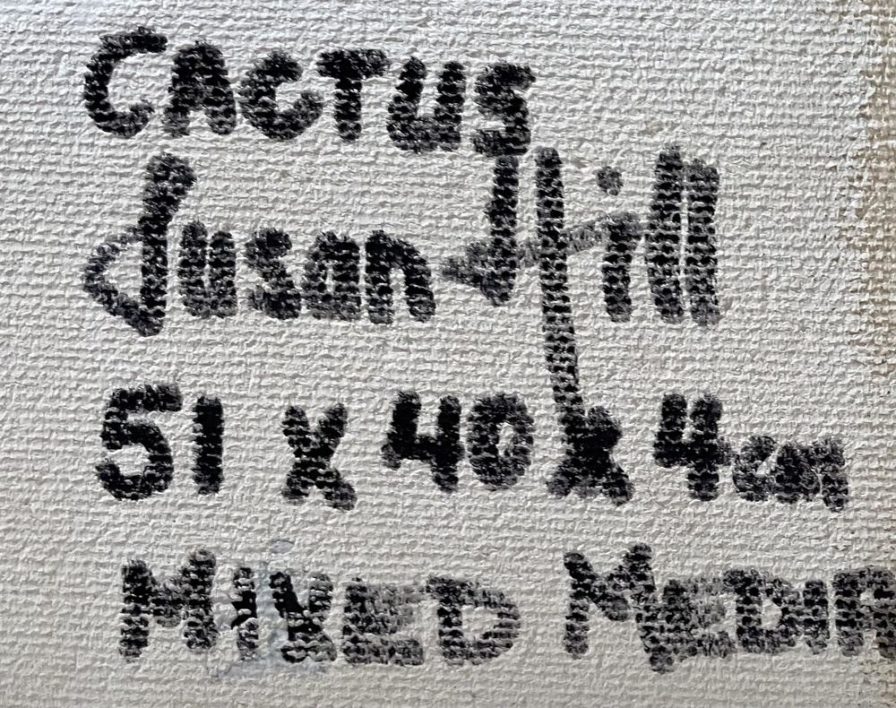 CACTUS
Susan Hill
51 x 40 x 4cm
MIXED MEDIA